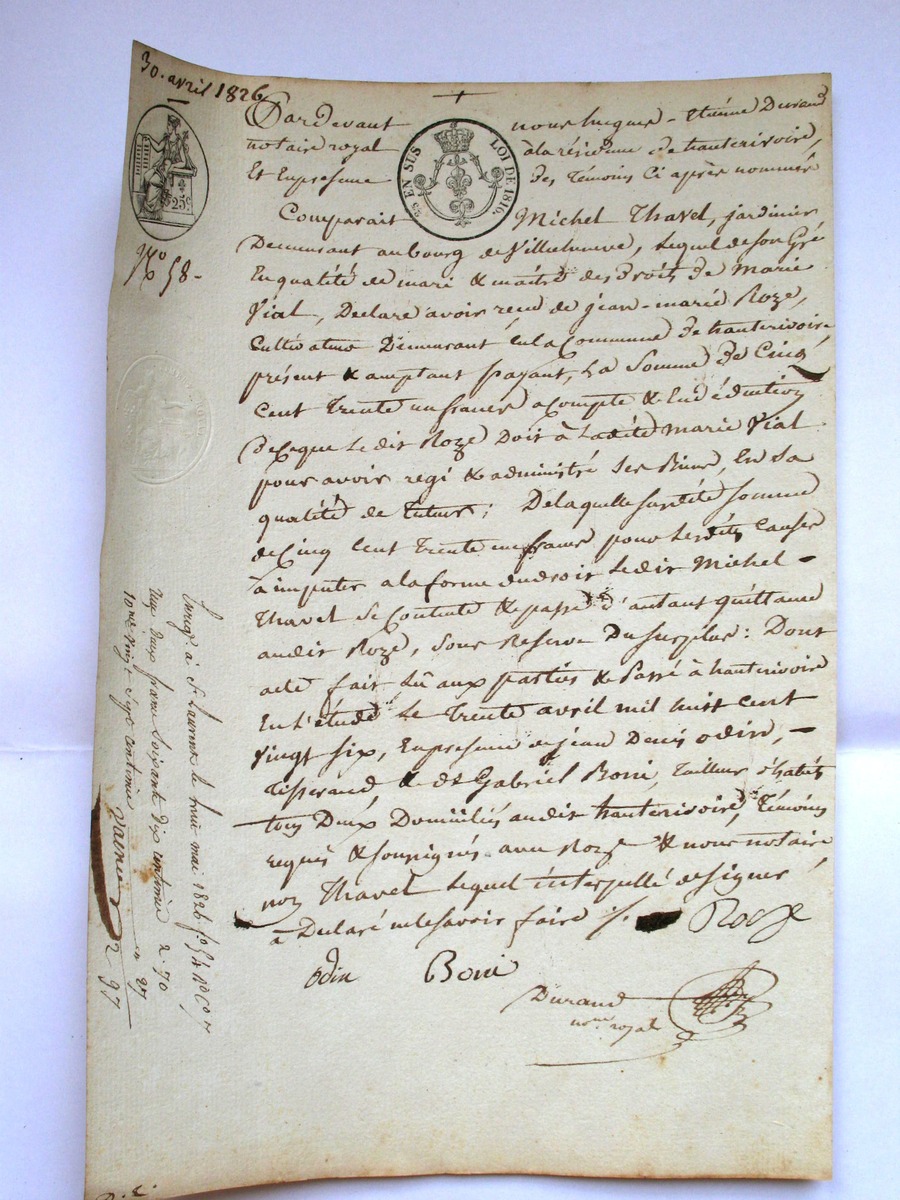 30. avril 1826
Pardevant nous hugues-Etiéne Durand
notaire royal à la résidence de hauterivoire,
Et En presence des Témoins Ci après nommés
EN SUS LOI DE 1816.
25c
No 58-
Comparait Michel Thavel, jardinier
Demeurant au bourg de Villeneuve, lequel de son Gré
En qualité de mari & maitre des droits de Marie
Vial, Declare avoir recu de jean-marie Roze,
Cultivateur Demeurant en la Commune de hauterivoire
présent & acceptant payant, La Somme de Cinq
Cent Trente un francs a Compte & En déduction
De Ce que Le dit Roze Doit à La dite Marie Vial
pour avoir regi & administré Ses Biens, En Sa
qualité de Tuteur; De laquelle susdite somme
de Cinq Cent Trente un francs pour Les dites Causes
à imputer a la forme du droit Le dit Michel -
Thavel Se Contente & passe d'autant quittance
audit Roze, Sous Reserve Du Surplus: Dont
acte fait Lû aux parties & Passé à hauterivoire
En L'étude Le Trente avril mil huit Cent
Vingt Six, En presence de jean Denis odin, -
Tisserand & de Gabriel Boni, Tailleur d'habits
tous Deux Domiciliés audit hauterivoire, Témoins
requis & soussignés avec Roze & nous notaire
non Thavel Lequel interpellé de signer
à Declaré ne le savoir faire /.
Roze
odin Boni
Durand
nore royal
Enregé à St Laurent le mai 1826 fo 54 Ro C 7
Reçu deux francs soixante dix centimes 2 70
10me vingt sept centimes 27
2 97